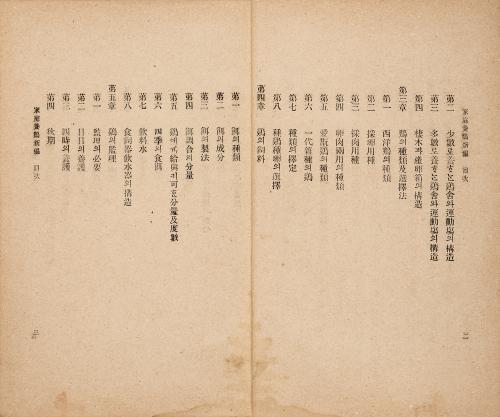 家庭養鷄新編 目次
第二 少數로養하는鷄舍와運動場의構造
第三 多數로養하는鷄舍와運動場의構造
第四 棲木과產卵箱의構造
第三章 鷄의種類及選擇法
第一 西洋鷄의種類
第二 採卵用種
第三 採肉用種
第四 卵肉兩用의種類
第五 愛翫鷄의種類
第六 一代雜種의鷄
第七 種類의擇定
第八 種鷄種卵의選擇
第四章 鷄의飼料
二
第一 餌의種類
第二 餌의成分
第三 餌의製法
第四 餌調合의分量
第五 鷄에게給與할分量及度數
第六 四季의食餌
第七 飮料水
第八 食餌器飮水器의構造
第五章 鷄의監理
第一 監理의必要
第二 日日의養護
第三 四時의養護
第四 秋期
家庭養鷄新編 目次
三